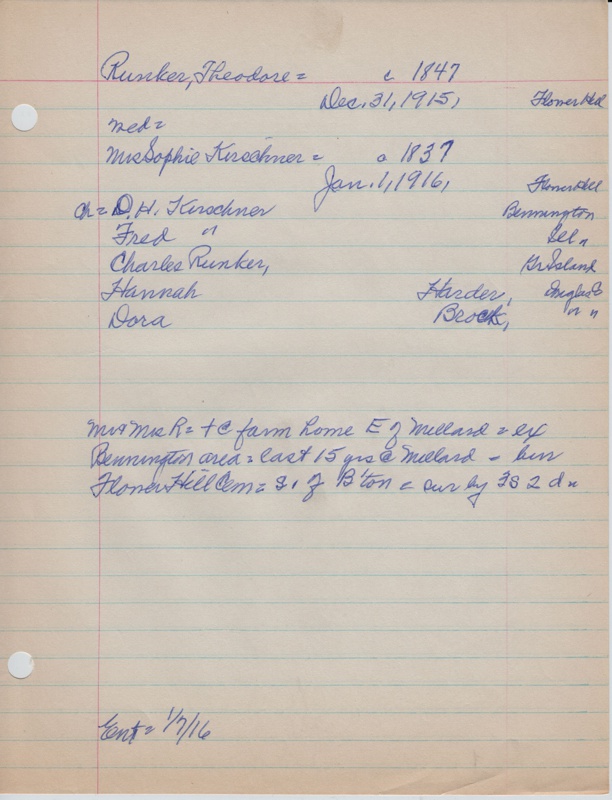 Runker, Theodore = c 1847
Dec. 31, 1915, Flower Hill
med =
Mrs Sophie Kirschner = c 1837
Jan. 1, 1916, Flower Hill
ch = D. H. Kirschner Bennington
Fred " Ill "
Charles Runker, Gr Island
Hannah Harder, Douglas C
Dora Brock, " "
Mr & Mrs R = + @ farm home E of Millard = ex
Bennington area = last 15 yrs @ Millard = bur
Flower Hill Cem = S. of B'ton = sur by 3s 2 d =
Ent = 1/7/16